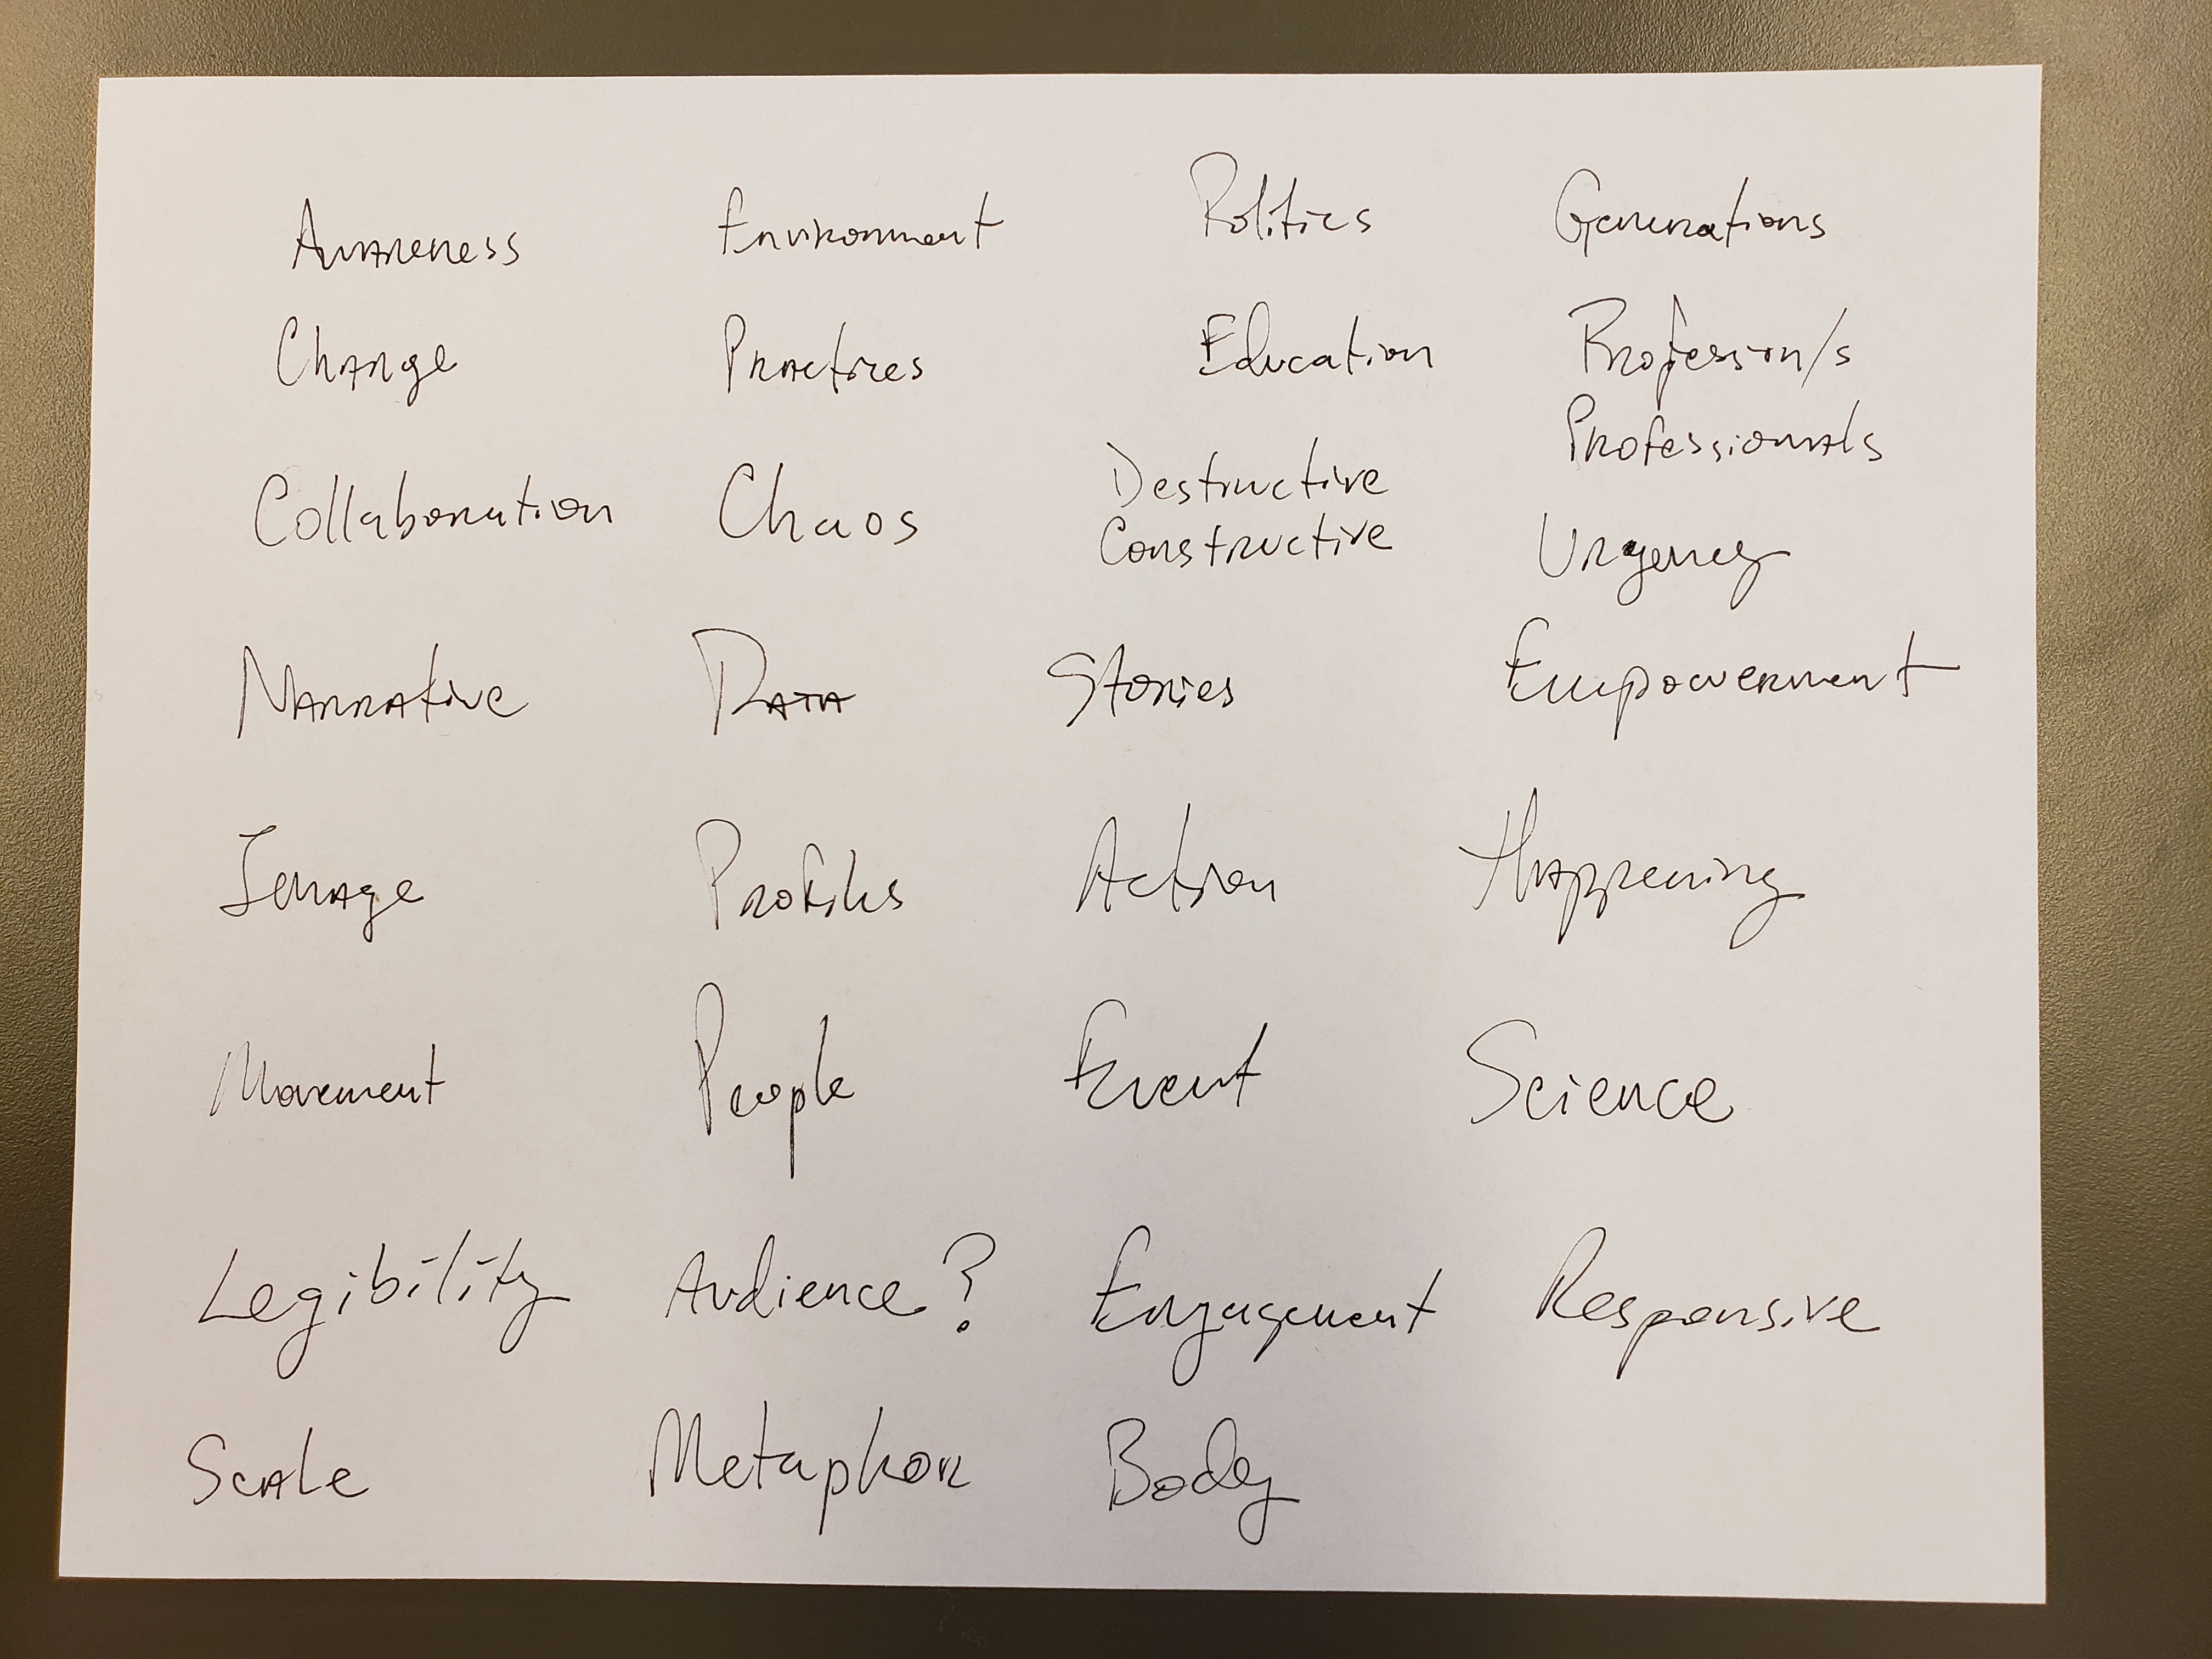 Awareness Environment Politics Generations
Change Practices Education Profession/s
Professionals
Collaboration Chaos Destructive
Constructive Urgency
Narrative Data Stories Empowerment
Image Profiles Action Happening
Movement People Event Science
Legibility Audience? Engagement Responsive
Scale Metaphor Body